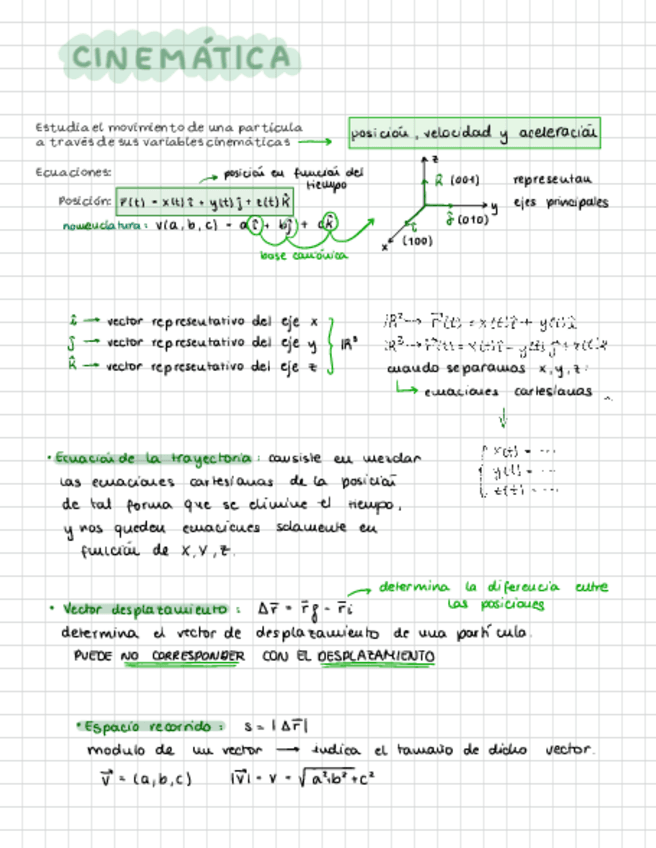 CINEMÁTICA
Estudia el movimiento de una partícula
a través de sus variables cinemáticas → posición, velocidad y aceleración
Ecuaciones: → posición en función del
tiempo
Posición: r̄(t) = x(t) î + y(t) ĵ + z(t) k̂
nomenclatura: v(a, b, c) = aî + bĵ + ck̂
base canónica
z
k̂ (001)
y
ĵ (010)
î
(100)
x
representan
ejes principales
î → vector representativo del eje x
ĵ → vector representativo del eje y
k̂ → vector representativo del eje z
IR³
IR² → r̄(t) = x(t) î + y(t)
IR³ → r̄(t) = x(t) î
cuando separamos x, y, z:
↳ ecuaciones cartesianas
↓
x(t) = ...
y(t) = ...
z(t) = ...
• Ecuación de la trayectoria: consiste en mezclar
las ecuaciones cartesianas de la posición
de tal forma que se elimine el tiempo,
y nos queden ecuaciones solamente en
función de x, y, z.
→ determina la diferencia entre
las posiciones
• Vector desplazamiento: Δr̄ = r̄f - r̄i
determina el vector de desplazamiento de una partícula.
PUEDE NO CORRESPONDER CON EL DESPLAZAMIENTO
• Espacio recorrido: s = |Δr̄|
modulo de un vector → indica el tamaño de dicho vector.
v⃗ = (a, b, c) |v⃗| = v = √a²+b²+c²